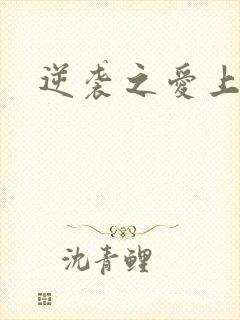 逆袭之爱上
沈青鲤